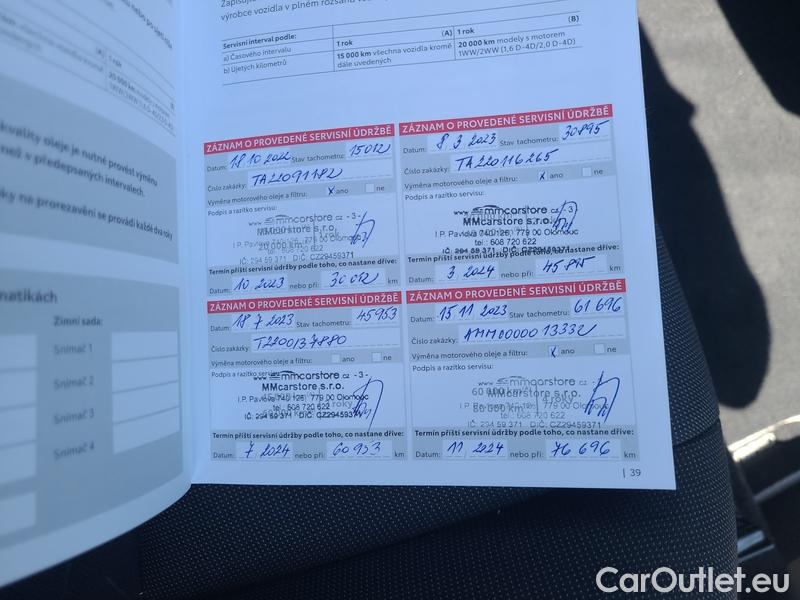 výrobce vozidla v plném rozsahu
Servisní interval podle: (A) (B)
a) Časového intervalu 1 rok 1 rok
b) Ujetých kilometrů 15 000 km všechna vozidla kromě dále uvedených 20 000 km modely s motorem 1WW/2WW (1,6 D-4D/2,0 D-4D)
kvality oleje je nutné provést výměnu
než v předepsaných intervalech.
ky na prorezavění se provádí každé dva roky
matikách
Zimní sada:
Snímač 1
Snímač 2
Snímač 3
Snímač 4
ZÁZNAM O PROVEDENÉ SERVISNÍ ÚDRŽBĚ
Datum: 18 10 2022 Stav tachometru: 15012
Číslo zakázky: TA22091182
Výměna motorového oleje a filtru: x ano ne
Podpis a razítko servisu:
www.mmcarstore.cz - 3 -
MMcarstore s.r.o.
I.P. Pavlova 740/126, 779 00 Olomouc
tel.: 608 720 622
IČ: 294 59 371 DIČ: CZ29459371
Termín příští servisní údržby podle toho, co nastane dříve:
Datum: 10 2023 nebo při: 30012 km
ZÁZNAM O PROVEDENÉ SERVISNÍ ÚDRŽBĚ
Datum: 8 3 2023 Stav tachometru: 30895
Číslo zakázky: TA220116265
Výměna motorového oleje a filtru: x ano ne
Podpis a razítko servisu:
www.mmcarstore.cz - 3 -
MMcarstore s.r.o.
I.P. Pavlova 740/126, 779 00 Olomouc
tel.: 608 720 622
IČ: 294 59 371 DIČ: CZ29459371
Termín příští servisní údržby podle toho, co nastane dříve:
Datum: 3 2024 nebo při: 45895 km
ZÁZNAM O PROVEDENÉ SERVISNÍ ÚDRŽBĚ
Datum: 18 7 2023 Stav tachometru: 45953
Číslo zakázky: T2200137880
Výměna motorového oleje a filtru: ano ne
Podpis a razítko servisu:
www.mmcarstore.cz - 3 -
MMcarstore s.r.o.
I.P. Pavlova 740/126, 779 00 Olomouc
tel.: 608 720 622
IČ: 294 59 371 DIČ: CZ29459371
Termín příští servisní údržby podle toho, co nastane dříve:
Datum: 7 2024 nebo při: 60953 km
ZÁZNAM O PROVEDENÉ SERVISNÍ ÚDRŽBĚ
Datum: 15 11 2023 Stav tachometru: 61 696
Číslo zakázky: AMM00000 13332
Výměna motorového oleje a filtru: x ano ne
Podpis a razítko servisu:
www.mmcarstore.cz - 3 -
MMcarstore s.r.o.
I.P. Pavlova 740/126, 779 00 Olomouc
tel.: 608 720 622
IČ: 294 59 371 DIČ: CZ29459371
Termín příští servisní údržby podle toho, co nastane dříve:
Datum: 11 2024 nebo při: 76 696 km
| 39
CarOutlet.eu